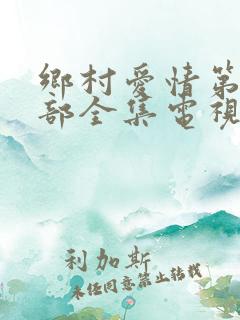 鄉村愛情第
部全集電視
利加斯
未经同意禁止转载